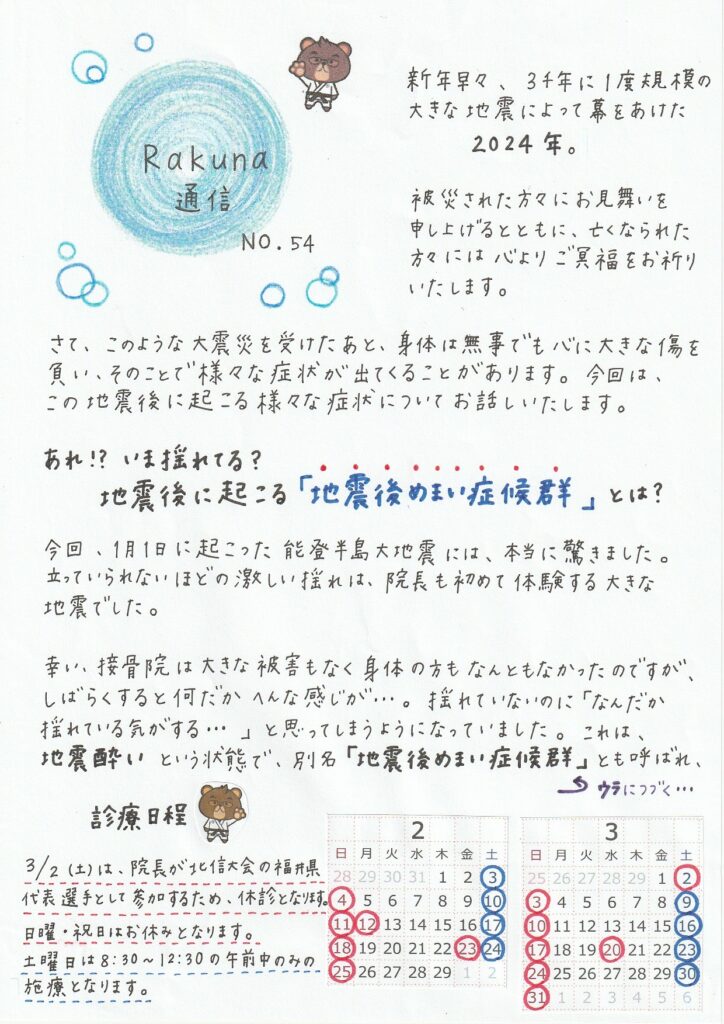 Rakuna
通信
NO.54
新年早々、3千年に1度規模の
大きな地震によって幕をあけた
2024年。
被災された方々にお見舞いを
申し上げるとともに、亡くなられた
方々には心よりご冥福をお祈り
いたします。
さて、このような大震災を受けたあと、身体は無事でも心に大きな傷を
負い、そのことで様々な症状が出てくることがあります。今回は、
この地震後に起こる様々な症状についてお話しいたします。
あれ!? いま揺れてる?
地震後に起こる「地震後めまい症候群」とは?
今回、1月1日に起こった能登半島大地震には、本当に驚きました。
立っていられないほどの激しい揺れは、院長も初めて体験する大きな
地震でした。
幸い、接骨院は大きな被害もなく身体の方もなんともなかったのですが、
しばらくすると何だかへんな感じが…。揺れていないのに「なんだか
揺れている気がする…」と思ってしまうようになっていました。これは、
地震酔いという状態で、別名「地震後めまい症候群」とも呼ばれ、
ウラにつづく…
診療日程
3/2(土)は、院長が北信大会の福井県
代表選手として参加するため、休診となります。
日曜・祝日はお休みとなります。
土曜日は8:30~12:30の午前中のみの
施療となります。
2
日 月 火 水 木 金 土
28 29 30 31 1 2 3
4 5 6 7 8 9 10
11 12 13 14 15 16 17
18 19 20 21 22 23 24
25 26 27 28 29 1 2
3
日 月 火 水 木 金 土
25 26 27 28 29 1 2
3 4 5 6 7 8 9
10 11 12 13 14 15 16
17 18 19 20 21 22 23
24 25 26 27 28 29 30
31 1 2 3 4 5 6